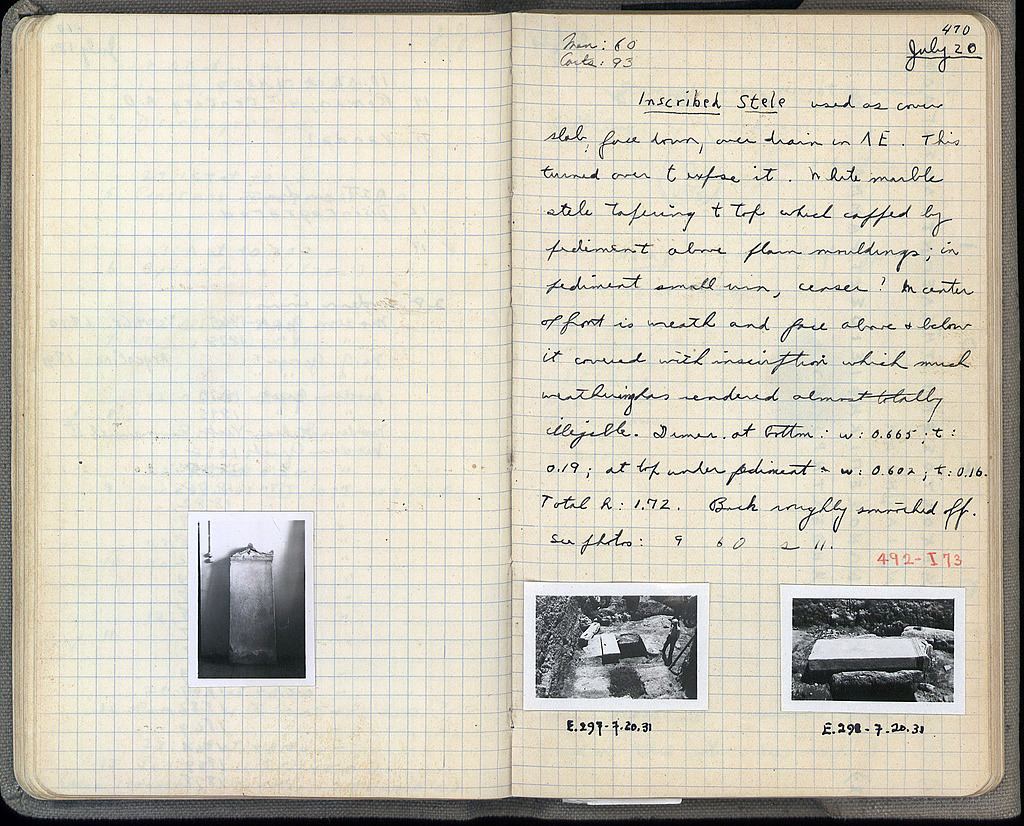 470
Men: 60
Carts: 93
July 20
Inscribed Stele used as cover
slab, face down, over drain in ΛE. This
turned over t expose it. White marble
stele tapering t top which capped by
pediment above plain mouldings; in
pediment small urn, censer? In center
of front is wreath and face above & below
it covered with inscription which much
weathering has rendered almost totally
illegible. Dimen. at bottom: w: 0.665; t:
0.19; at top under pediment - w: 0.602; t: 0.16.
Total h: 1.72. Back roughly smoothed off.
See photos: 9 60 2 11.
492-I 73
E.297-7.20.31
E.298-7.20.31